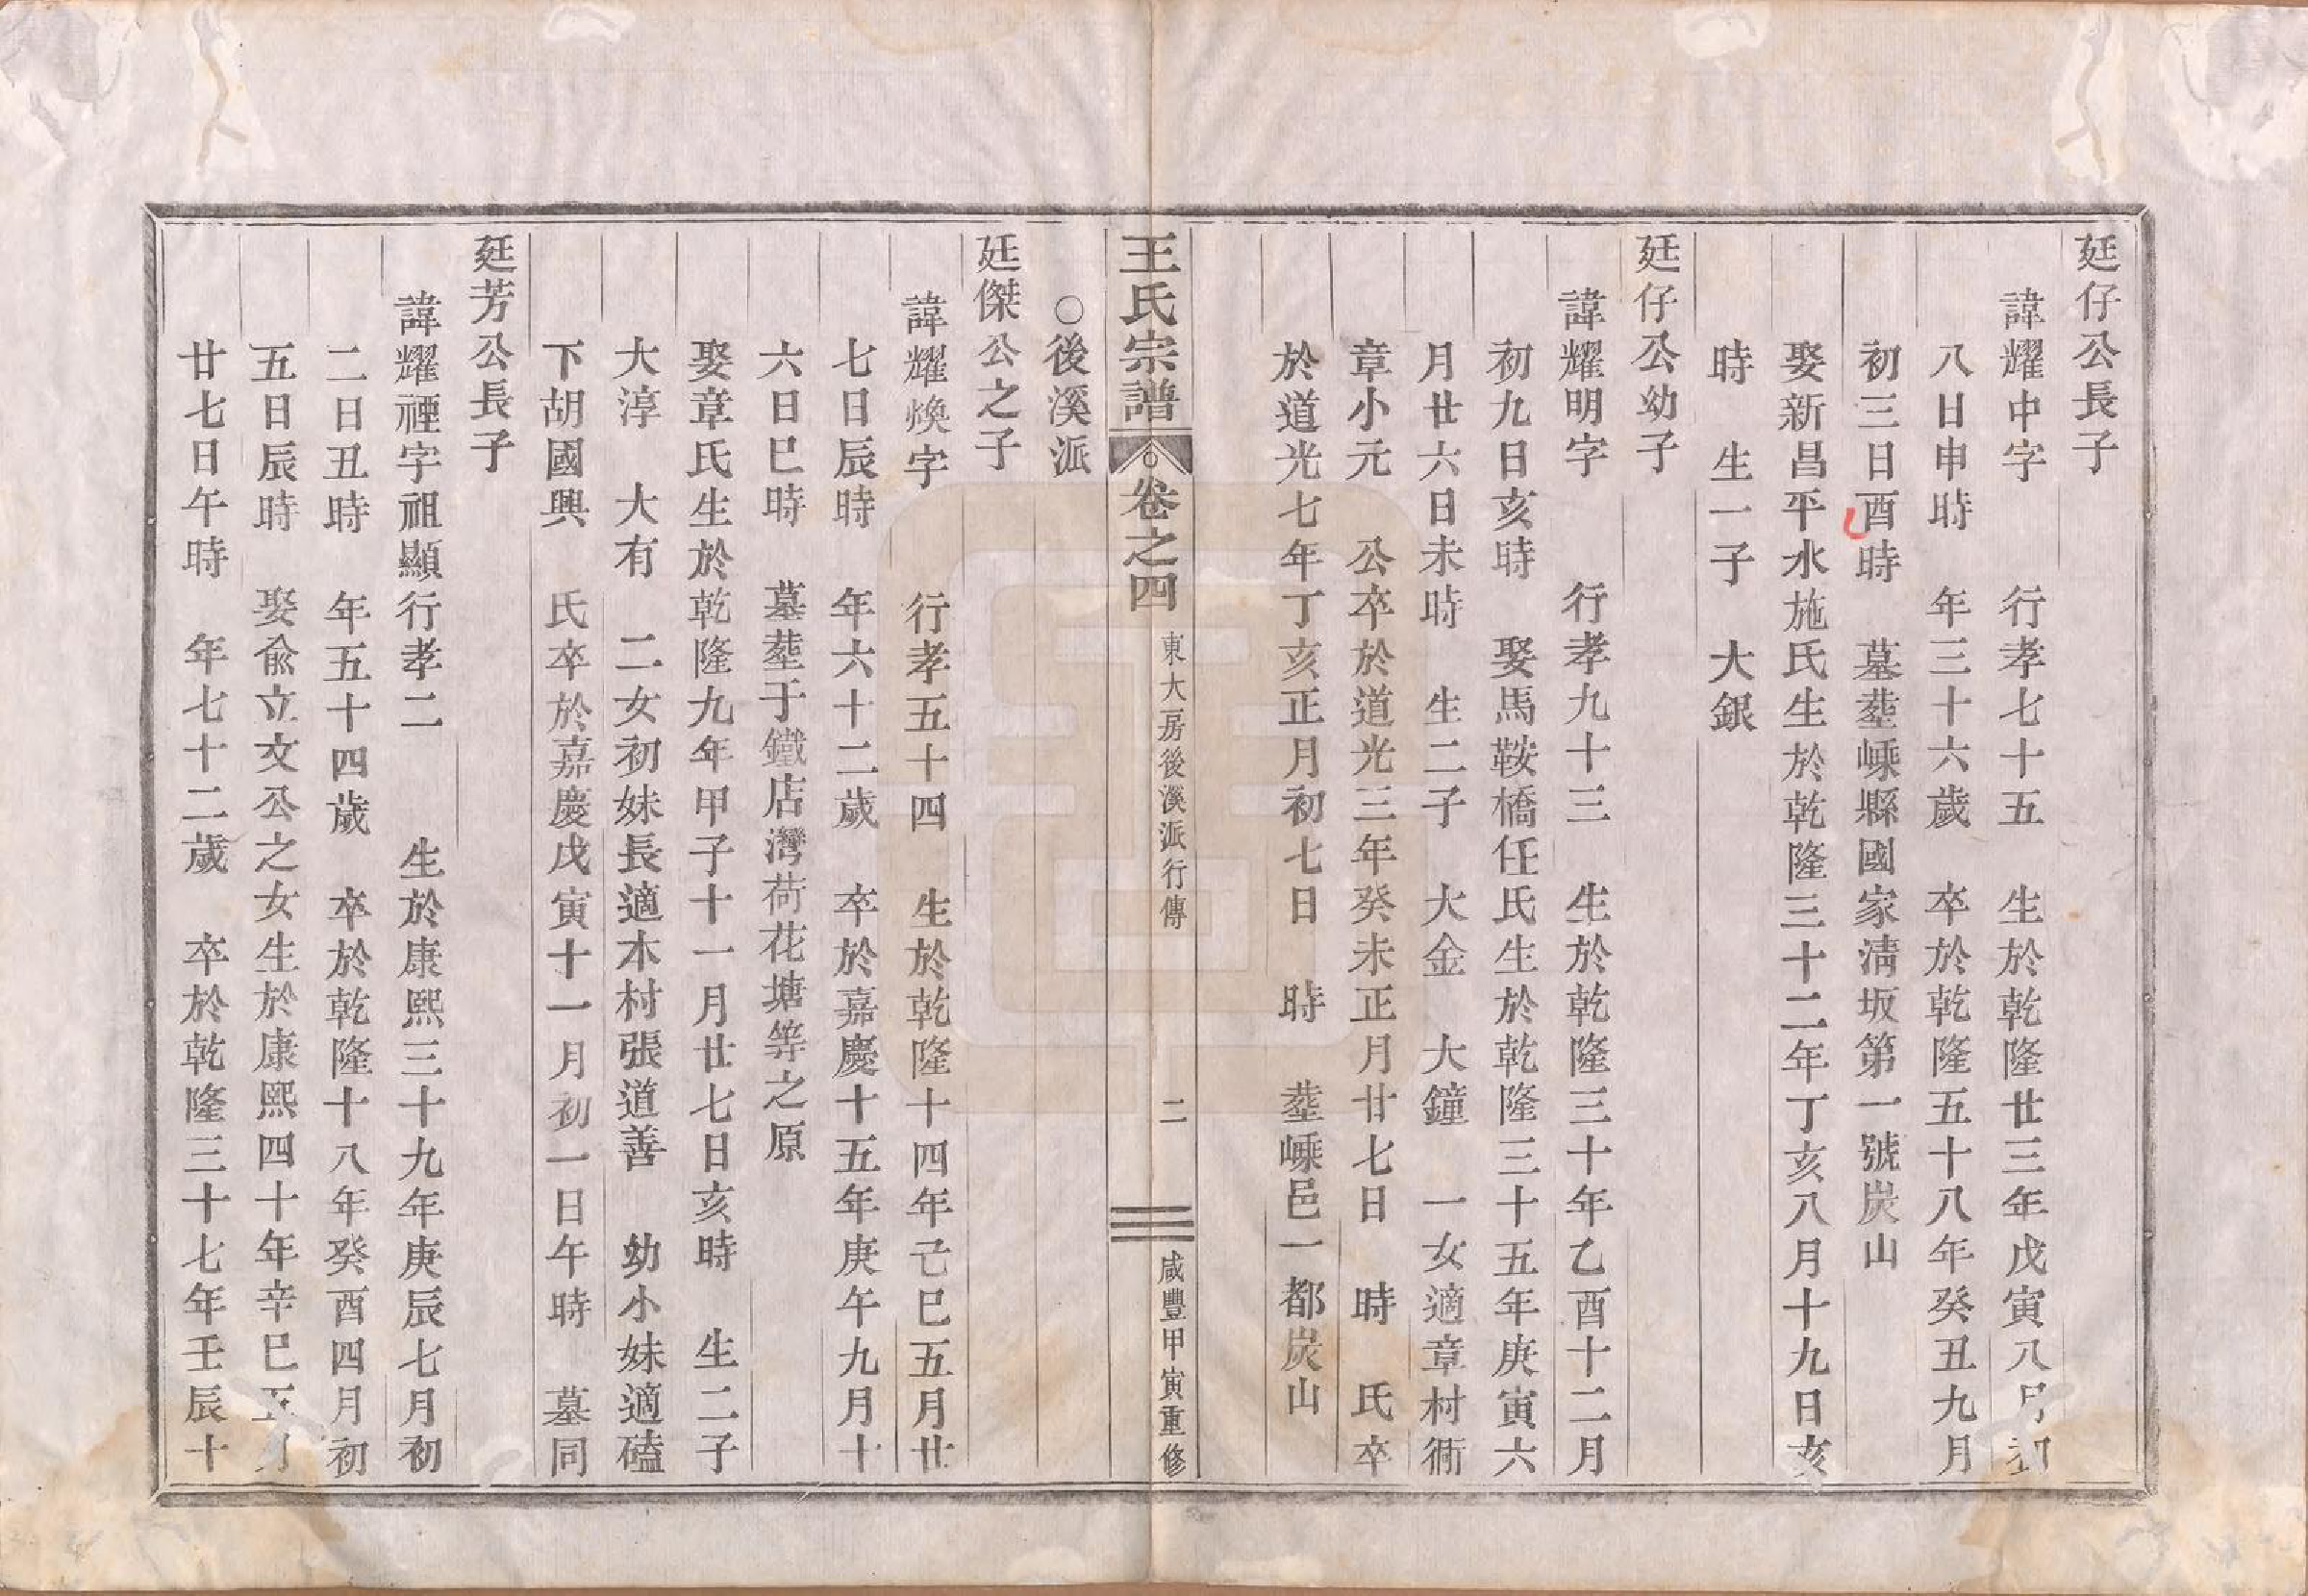 廷仔公長子
諱耀中字 行孝七十五 生於乾隆廿三年戊寅八月初
八日申時 年三十六歲 卒於乾隆五十八年癸丑九月
初三日酉時 墓塟嵊縣國家淸坂第一號炭山
娶新昌平水施氏生於乾隆三十二年丁亥八月十九日亥
時 生一子 大銀
廷仔公幼子
諱耀明字 行孝九十三 生於乾隆三十年乙酉十二月
初九日亥時 娶馬鞍橋任氏生於乾隆三十五年庚寅六
月廿六日未時 生二子 大金 大鐘 一女適章村衕
章小元 公卒於道光三年癸未正月廿七日 時 氏卒
於道光七年丁亥正月初七日 時 塟嵊邑一都炭山
王氏宗譜 卷之四 東大房後溪派行傳 二 咸豐甲寅重修
○後溪派
廷傑公之子
諱耀煥字 行孝五十四 生於乾隆十四年己巳五月廿
七日辰時 年六十二歲 卒於嘉慶十五年庚午九月十
六日巳時 墓塟于鐵店灣荷花塘塋之原
娶章氏生於乾隆九年甲子十一月廿七日亥時 生二子
大淳 大有 二女初妹長適木村張道善 幼小妹適磕
下胡國興 氏卒於嘉慶戊寅十一月初一日午時 墓同
廷芳公長子
諱耀禋字祖顯行孝二 生於康熙三十九年庚辰七月初
二日丑時 年五十四歲 卒於乾隆十八年癸酉四月初
五日辰時 娶俞立文公之女生於康熙四十年辛巳五月
廿七日午時 年七十二歲 卒於乾隆三十七年壬辰十